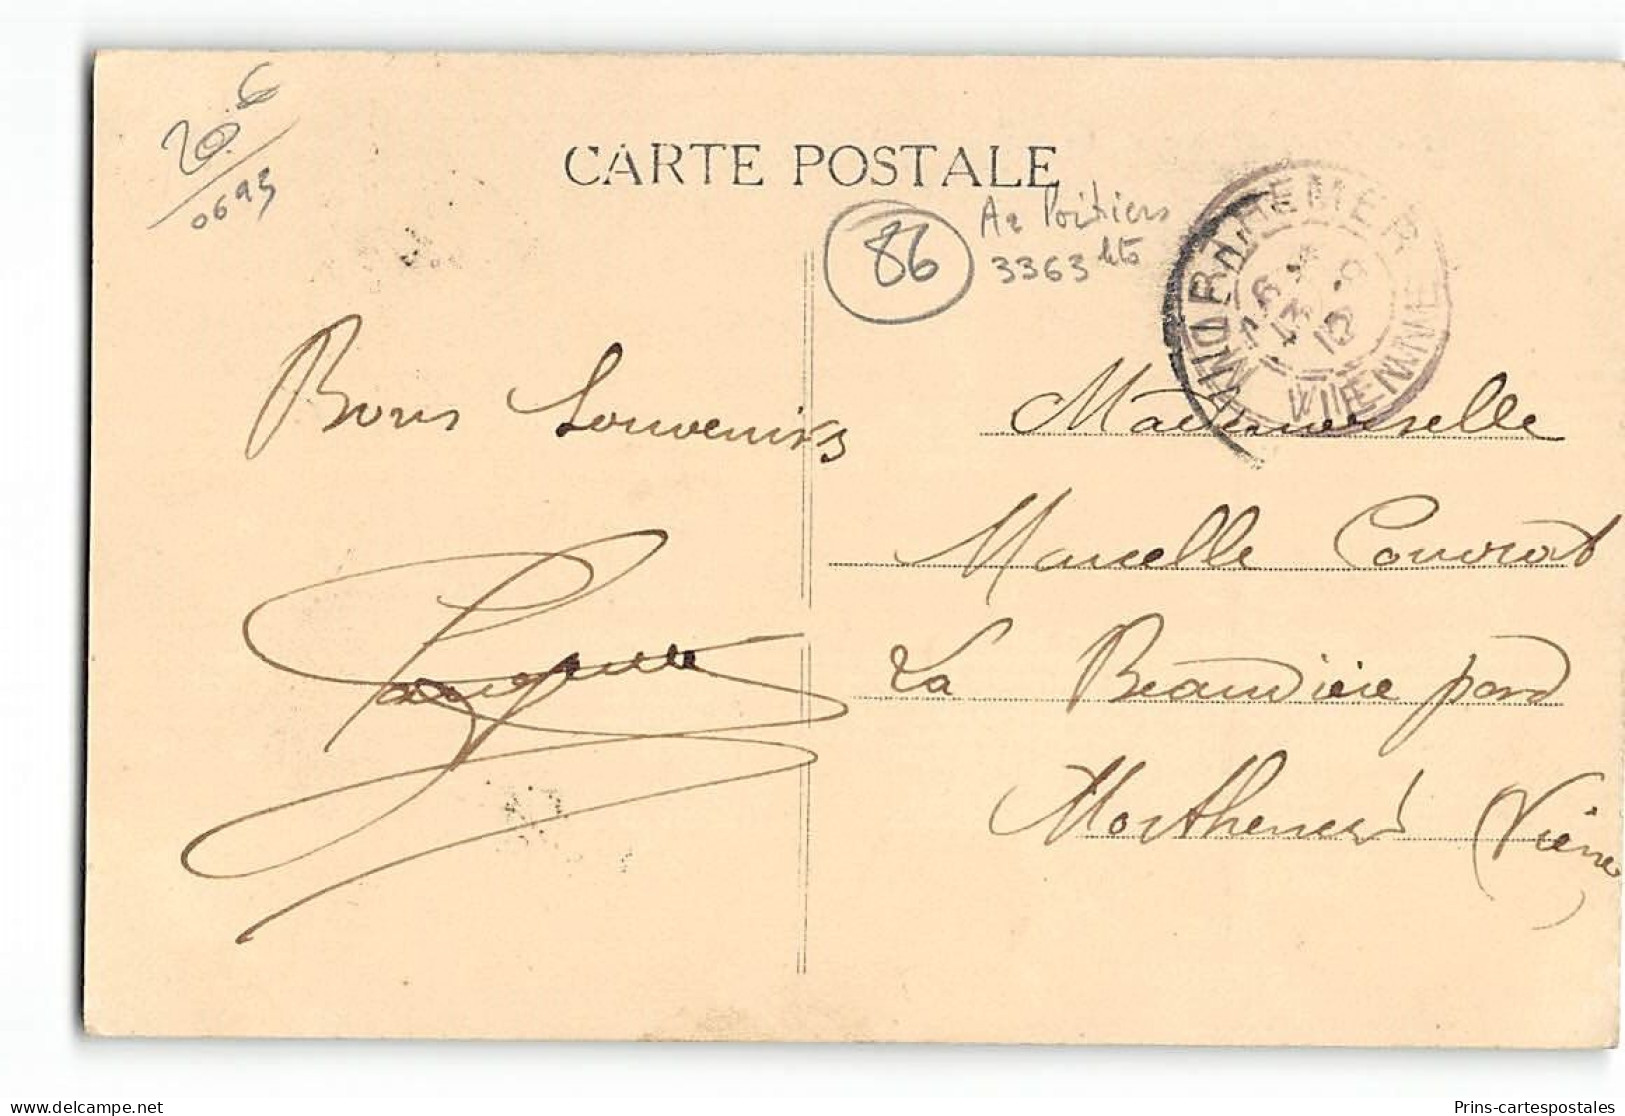 20 €
0693
CARTE POSTALE
86
Az Poitiers
3363 hts
VIENNE
Bons Souvenirs
Mademoiselle
Marcelle Couvrat
La Beaudière par
Morthemer
(Vienne
delcampe.net
Prins-cartespostales